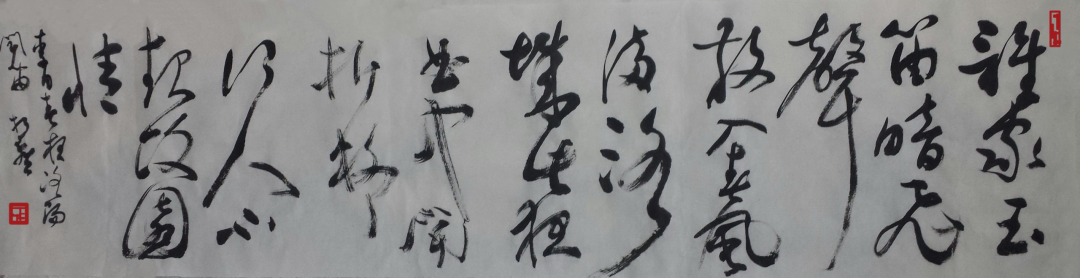 誰家玉
笛暗飛
聲
散入春風
滿洛
城此夜
曲中聞
折柳
何人不
起故園
情
李白春夜洛陽
聞笛